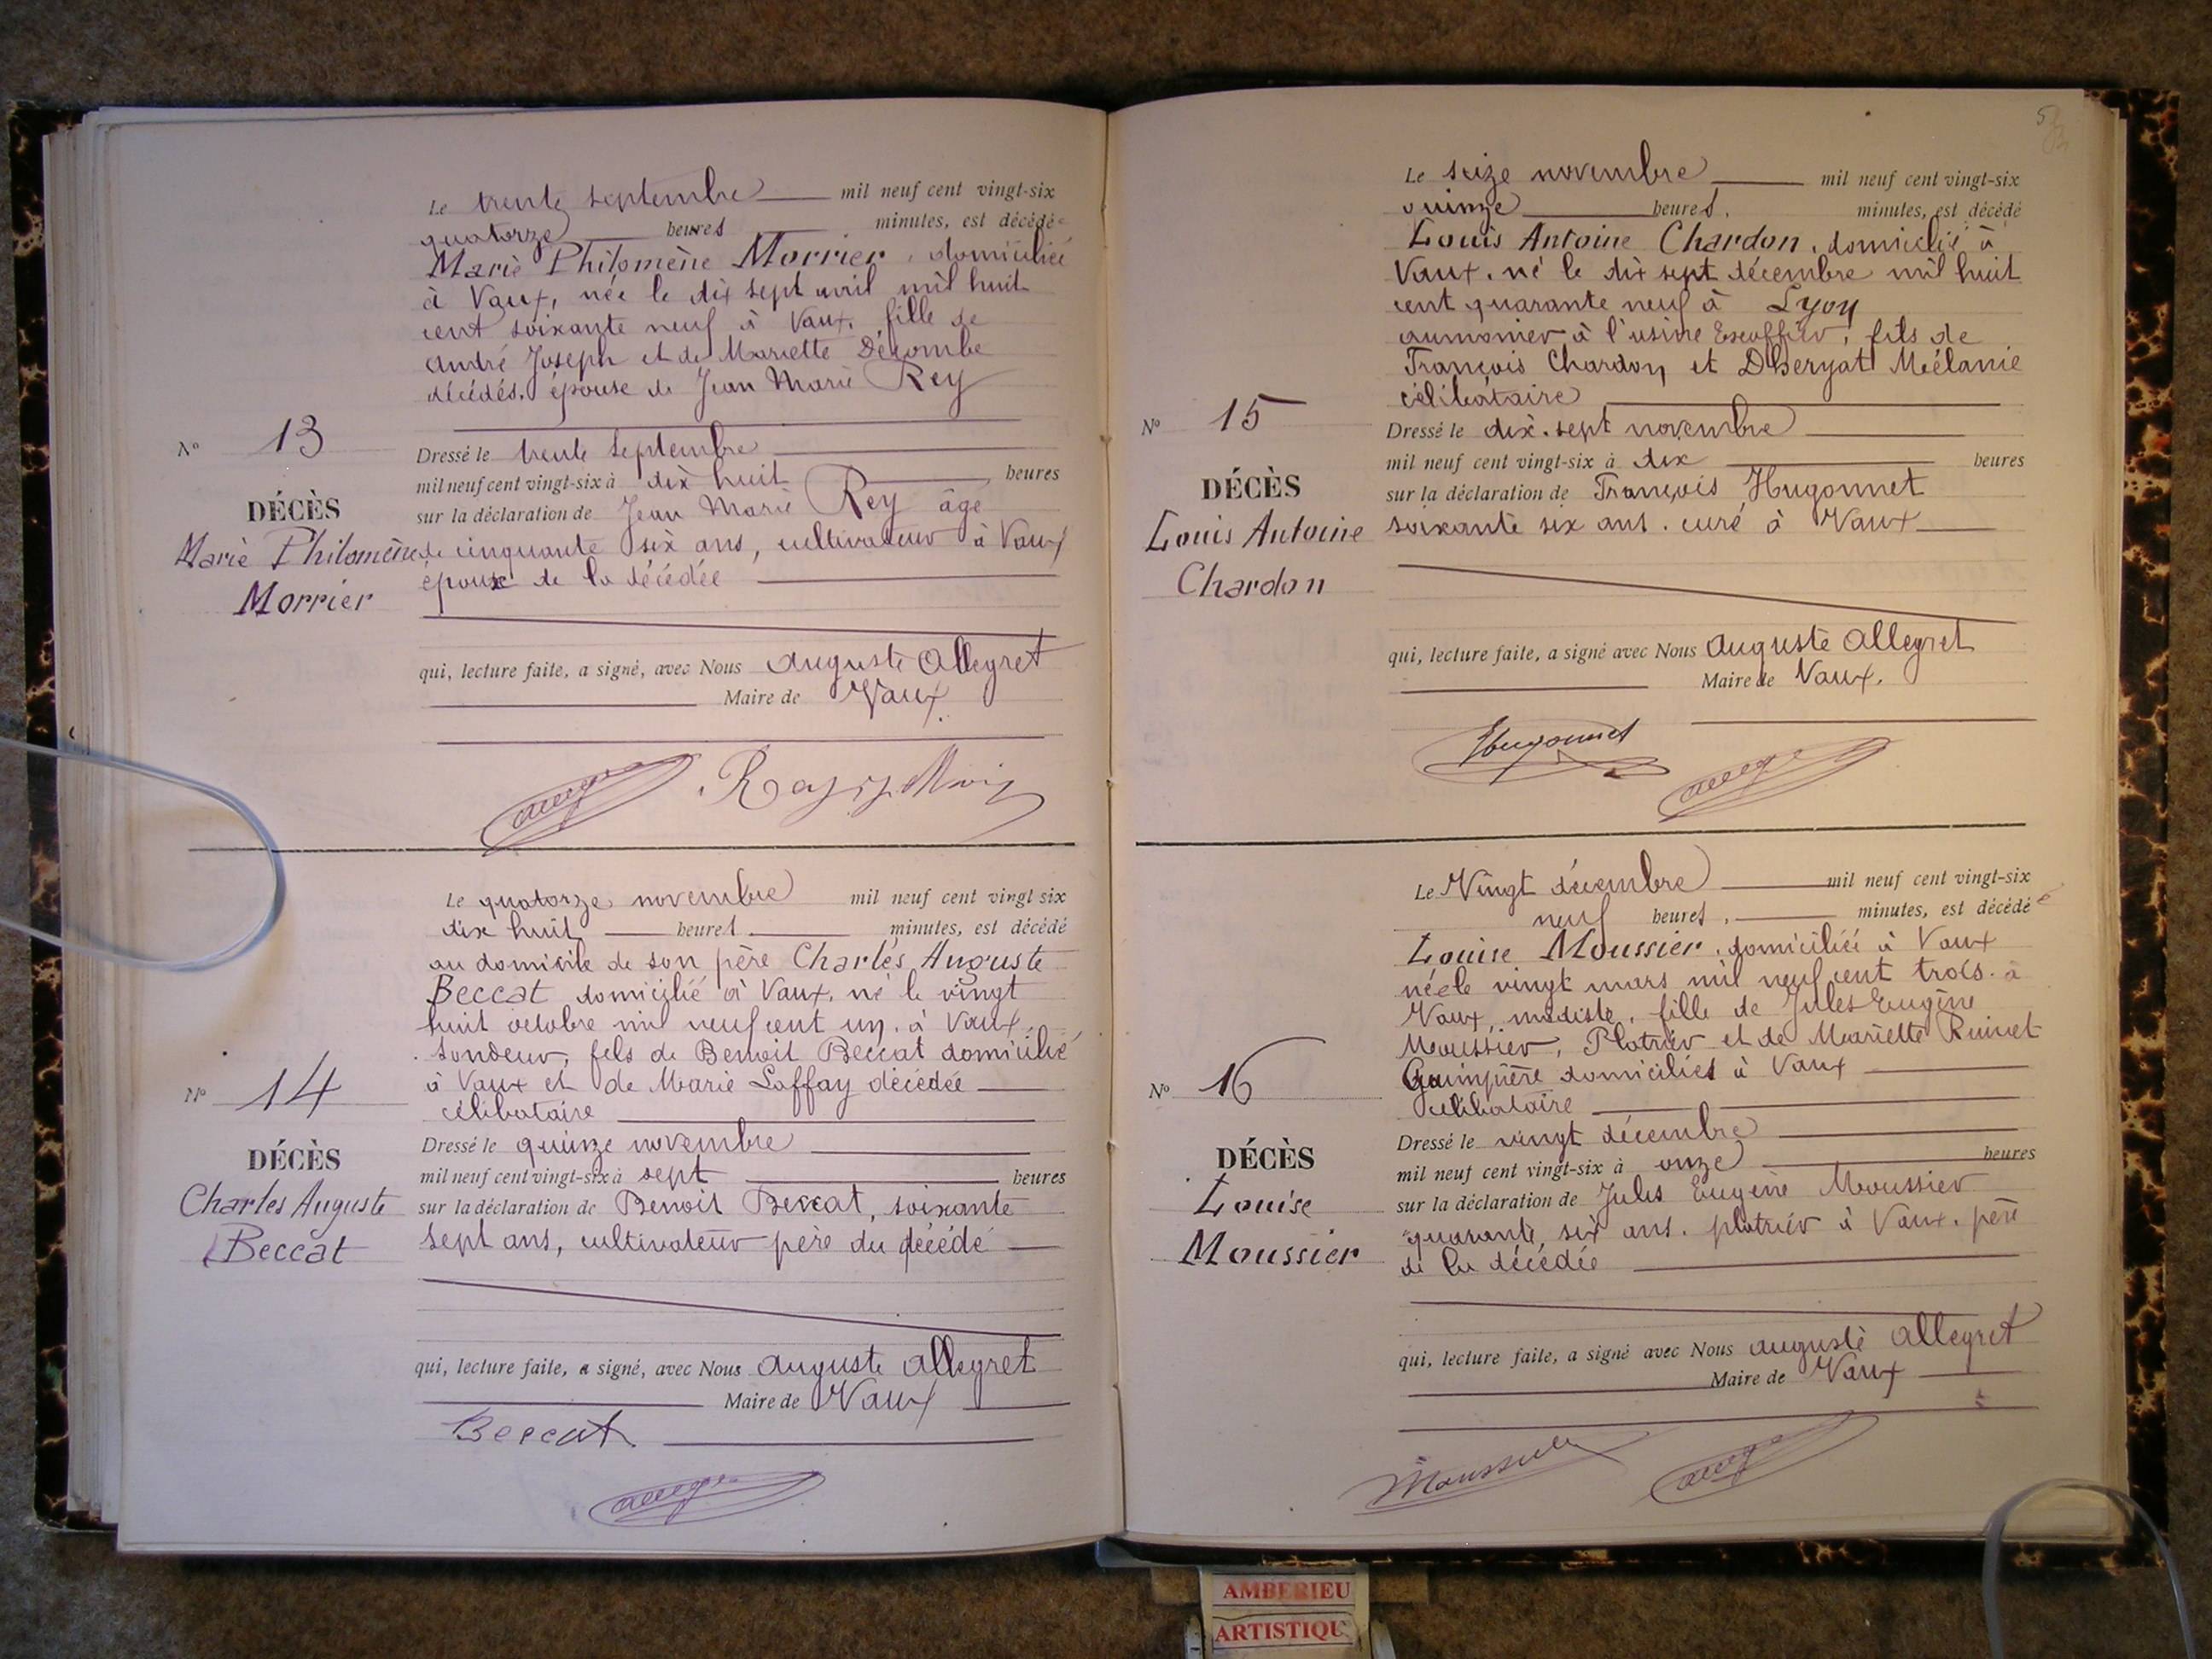 Le trente septembre mil neuf cent vingt-six
quatorze heures minutes, est décédé
Marie Philomène Morrier, domiciliée
à Vaux, née le dix sept avril mil huit
cent soixante neuf à Vaux, fille de
André Joseph et de Mariette Décombe
décédés, épouse de Jean Marie Rey
N° 13
Dressé le trente septembre
mil neuf cent vingt-six à dix huit heures
DÉCÈS
sur la déclaration de Jean Marie Rey âgé
Marie Philomène
de cinquante six ans, cultivateur à Vaux
Morrier
époux de la décédée
qui, lecture faite, a signé, avec Nous Auguste Allegret
Maire de Vaux.
Le quatorze novembre mil neuf cent vingt six
dix huit heures minutes, est décédé
au domicile de son père Charles Auguste
Beccat domicilié à Vaux, né le vingt
huit octobre mil neuf cent un, à Vaux,
sondeur, fils de Benoit Beccat domicilié
à Vaux et de Marie Laffay décédée
célibataire
N° 14
Dressé le quinze novembre
DÉCÈS
mil neuf cent vingt-six à sept heures
Charles Auguste
sur la déclaration de Benoit Beccat, soixante
Beccat
sept ans, cultivateur père du décédé
qui, lecture faite, a signé, avec Nous Auguste Allegret
Maire de Vaux
Beccat
Le seize novembre mil neuf cent vingt-six
quinze heures, minutes, est décédé
Louis Antoine Chardon, domicilié à
Vaux, né le dix sept décembre mil huit
cent quarante neuf à Lyon
aumonier à l'usine Escoffier, fils de
François Chardon et Mélanie
célibataire
N° 15
Dressé le dix-sept novembre
mil neuf cent vingt-six à dix heures
DÉCÈS
sur la déclaration de François Hugonnet
Louis Antoine
soixante six ans, curé à Vaux
Chardon
qui, lecture faite, a signé avec Nous Auguste Allegret
Maire de Vaux.
Hugonnet
Le Vingt décembre mil neuf cent vingt-six
neuf heures, minutes, est décédée
Louise Moussier, domiciliée à Vaux
née le vingt mars mil neuf cent trois à
Vaux, modiste, fille de Jules Eugène
Moussier, Platrier et de Mariette
domiciliés à Vaux
célibataire
N° 16
Dressé le vingt décembre
DÉCÈS
mil neuf cent vingt-six à onze heures
Louise
sur la déclaration de Jules Eugène Moussier
Moussier
quarante six ans, platrier à Vaux, père
de la décédée
qui, lecture faite, a signé avec Nous Auguste Allegret
Maire de Vaux
Moussier
AMBERIEU
ARTISTIQU